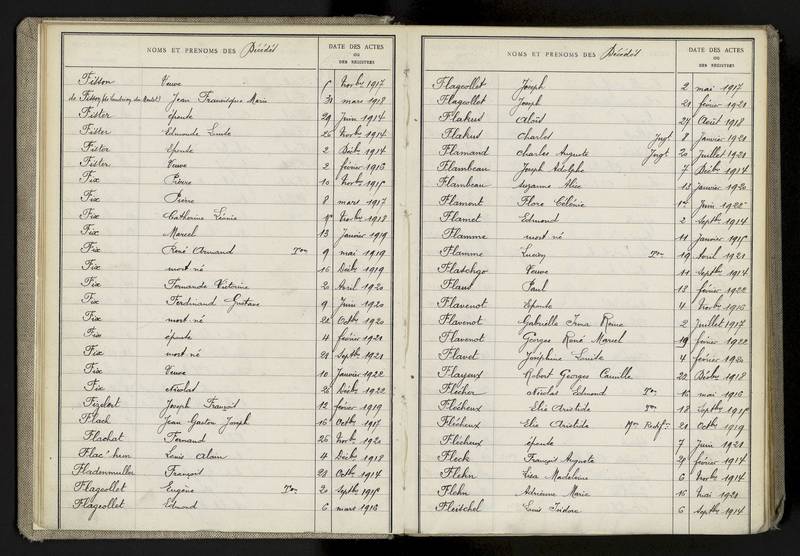 NOMS ET PRENOMS DES Décédés
DATE DES ACTES
OU
DES REGISTRES
Fitton Veuve Novbre 1917
de Jean Marie 31 mars 1918
Fister épouse 29 Juin 1914
Fister Edmonde 25 Novbre 1914
Fister Epouse 2 Décbre 1914
Fister Veuve 2 février 1916
Fix Pierre 10 Novbre 1915
Fix Pierre 8 mars 1917
Fix Catherine Novbre 1918
Fix Marcel 13 Janvier 1919
Fix René Armand Ton 9 mai 1919
Fix mort né 16 Décbre 1919
Fix Fernande Victorine 2 Avril 1920
Fix Ferdinand Gustave 9 Juin 1920
Fix mort né 22 Octbre 1920
Fix épouse 4 février 1921
Fix mort né 21 Septbre 1921
Fix Veuve 10 Janvier 1922
Fix Nicolas 26 Décbre 1922
Joseph François 12 février 1919
Flach Jean Gaston Joseph 16 Octbre 1917
Flachat Fernand 26 Novbre 1920
Flac'hem Louis Alain 4 Décbre 1918
Fladenmuller François 23 Octbre 1914
Flageollet Eugène Ton 20 Septbre 1915
Flageollet Edmond 6 mars 1916
NOMS ET PRENOMS DES Décédés
DATE DES ACTES
OU
DES REGISTRES
Flageollet Joseph 2 mai 1917
Flageollet Joseph 21 février 1921
Flakus Aloïs 27 Août 1918
Flakus Charles Jugt 8 Janvier 1920
Flamand Charles Auguste Jugt 20 Juillet 1921
Flambeau Joseph Adolphe 7 Décbre 1914
Flambeau Suzanne Alice 12 Janvier 1920
Flament Flore Célénie 1er Juin 1922
Flamet Edmond 2 Septbre 1914
Flamme mort né 11 Janvier 1915
Flamme Lucien Ton 19 Avril 1921
Flatschgo Veuve 11 Septbre 1914
Flaus Paul 13 février 1922
Flavenot Epouse 4 Novbre 1916
Flavenot Gabrielle Irma Reine 2 Juillet 1917
Flavenot Georges René Marcel 19 février 1922
Flavet Joséphine Louise 4 février 1920
Flayeux Robert Georges Camille 22 Décbre 1918
Flécher Nicolas Edmond Ton 16 mai 1916
Flécheux Elie Aristide Ton 18 Septbre 1915
Flécheux Elie Aristide 21 Octbre 1919
Flécheux épouse 7 Juin 1921
Fleck François Auguste 27 février 1914
Flehn Lisa Madeleine 6 Novbre 1914
Flehn Adrienne Marie 16 Mai 1921
Fleitschel Louis Isidore 6 Septbre 1914